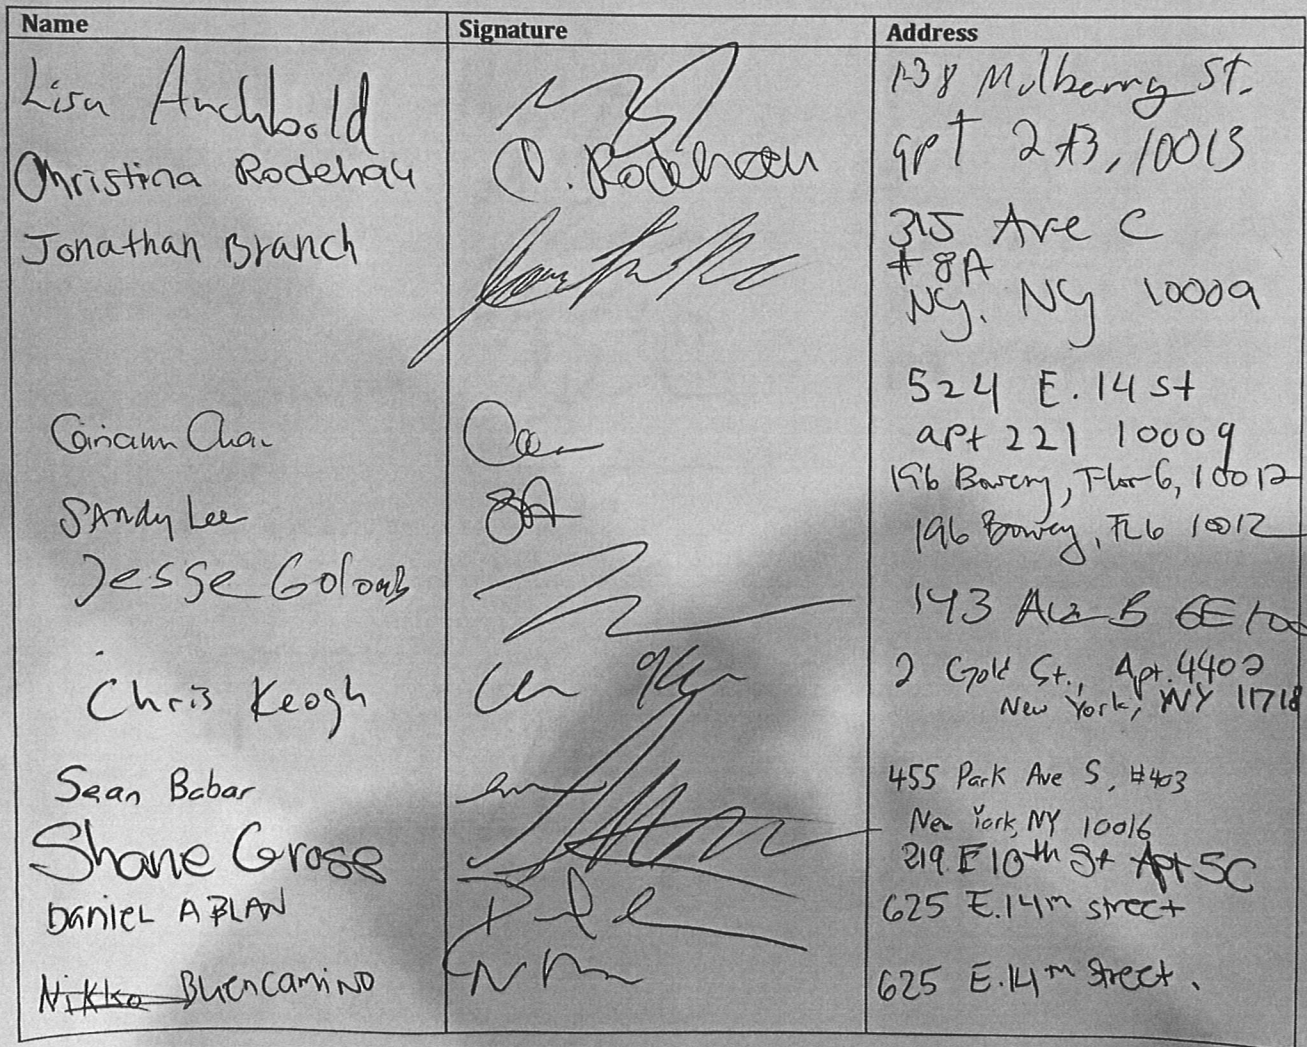 Name Signature Address
Lisa Archbold 138 Mulberry St.
apt 2B, 10013
Christina Rodehau C. Rodehau
Jonathan Branch 315 Ave C
#8A
NY, NY 10009
524 E. 14 st
apt 221 10009
196 Bowery, Floor 6, 10012
Sandy Lee 196 Bowery, FL6 10012
Jesse Golomb 143 Ave B 6E
Chris Keogh 2 Gold St., Apt. 4402
New York, NY
Sean Babar 455 Park Ave S, #403
New York, NY 10016
Shane Grose 219 E 10th St Apt 5C
Daniel ABLAN 625 E. 14th street
Nikko Buencamino 625 E. 14th Street.